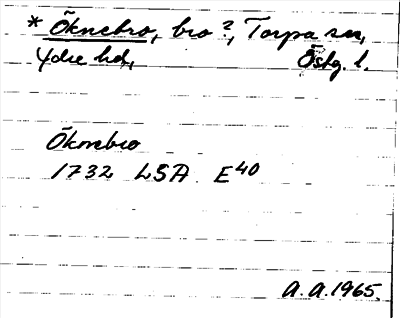 * Öknebro, bro?, Torpa sn,
Ydre hd, Östg. l.
Öknebro
1732 LSA E40
A.A.1965.